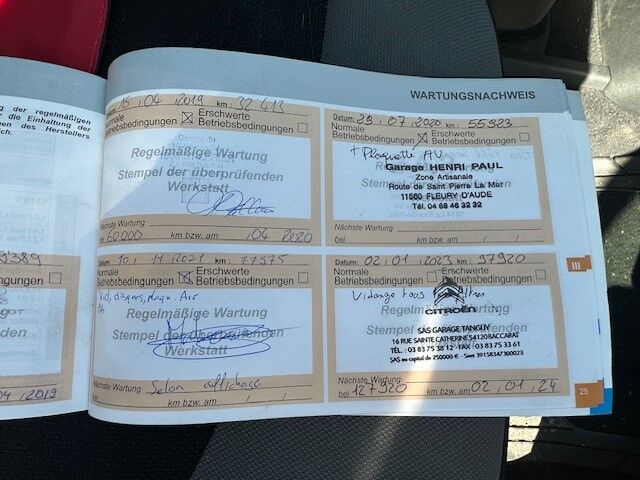 ng der regelmäßigen
r die Einhaltung der
en des Herstellers
ch.
9389
04 / 2019
WARTUNGSNACHWEIS
16 . 04 2019 km: 32 413
Normale
Betriebsbedingungen
Erschwerte
Betriebsbedingungen
Regelmäßige Wartung
Stempel der überprüfenden
Werkstatt
Nächste Wartung
60000 km bzw. am 04 2020
Datum: 29 . 07 2020 km: 55923
Normale
Betriebsbedingungen
Erschwerte
Betriebsbedingungen
+ Plaquette AV
Garage HENRI PAUL
Zone Artisanale
Route de Saint Pierre La Mer
11560 FLEURY D'AUDE
Tél. 04 68 46 32 32
Nächste Wartung
bei km bzw. am / /
Datum: 10 . 11 2021 km: 77975
Normale
Betriebsbedingungen
Erschwerte
Betriebsbedingungen
Vid, disques, plaq. Arr
Regelmäßige Wartung
Stempel der überprüfenden
Werkstatt
Nächste Wartung
Selon affichage
km bzw. am / /
Datum: 02 / 01 / 2023 km: 97920
Normale
Betriebsbedingungen
Erschwerte
Betriebsbedingungen
Vidange tous filtres
CITROËN
SAS GARAGE TANGUY
16 RUE SAINTE CATHERINE 54120 BACCARAT
TÉL.: 03 83 75 38 12 - FAX: 03 83 75 33 61
SAS au capital de 250000 € - Siret 39158347300023
Nächste Wartung
bei 127920 km bzw. am 02 / 01 / 24
III
25